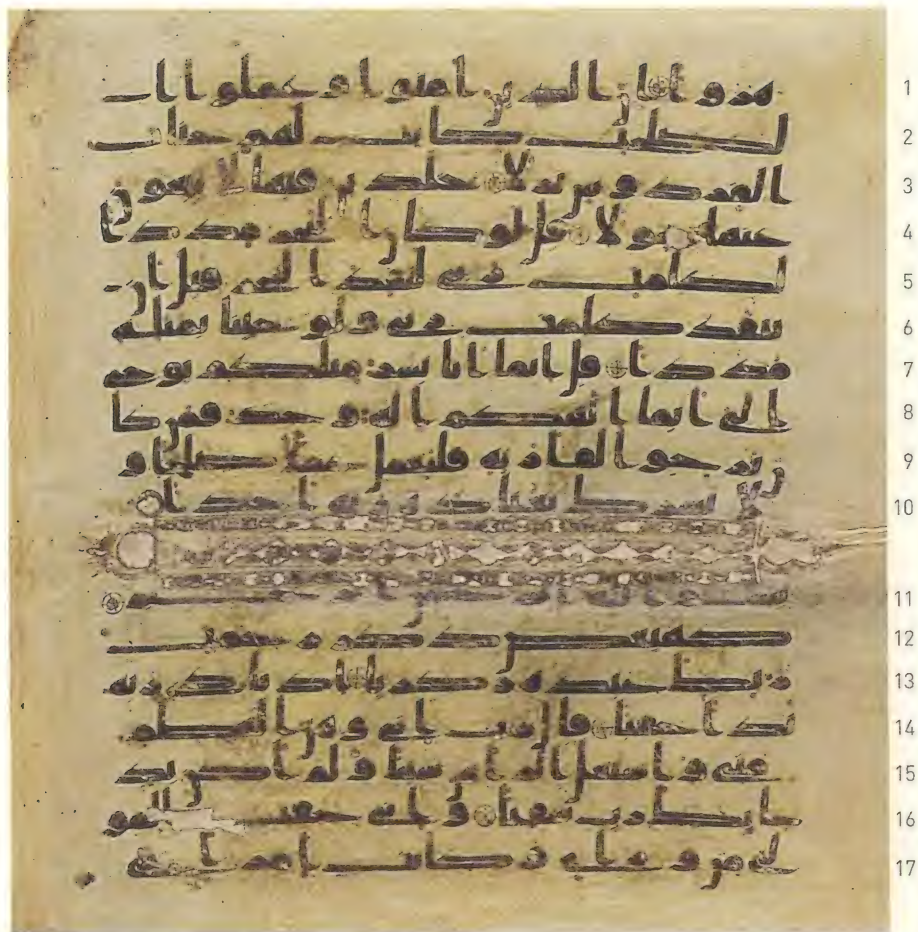 1 هزوا ان الذين امنوا وعملوا ا
2 لصلحت كانت لهم جنات
3 الفردوس نزلا خلدين فيها لا يبغون
4 عنها حولا قل لو كان البحر مددا
5 لكلمت ربي لنفد البحر قبل ان
6 تنفد كلمت ربي ولو جينا بمثله
7 مددا قل انما انا بشر مثلكم يوحى
8 الي انما الهكم اله وحد فمن كا
9 ن يرجوا لقا ربه فليعمل عملا صلحا و
10 لا يشرك بعباده ربه احدا
11 بسم الله الرحمن الرحيم
12 كهيعص ذكر رحمت
13 ربك عبده زكريا اذ نادى ربه
14 ندا خفيا قال رب اني وهن العظم
15 مني واشتعل الراس شيبا ولم اكن بد
16 عايك رب شقيا واني خفت المو
17 لي من وراي وكانت امراتي